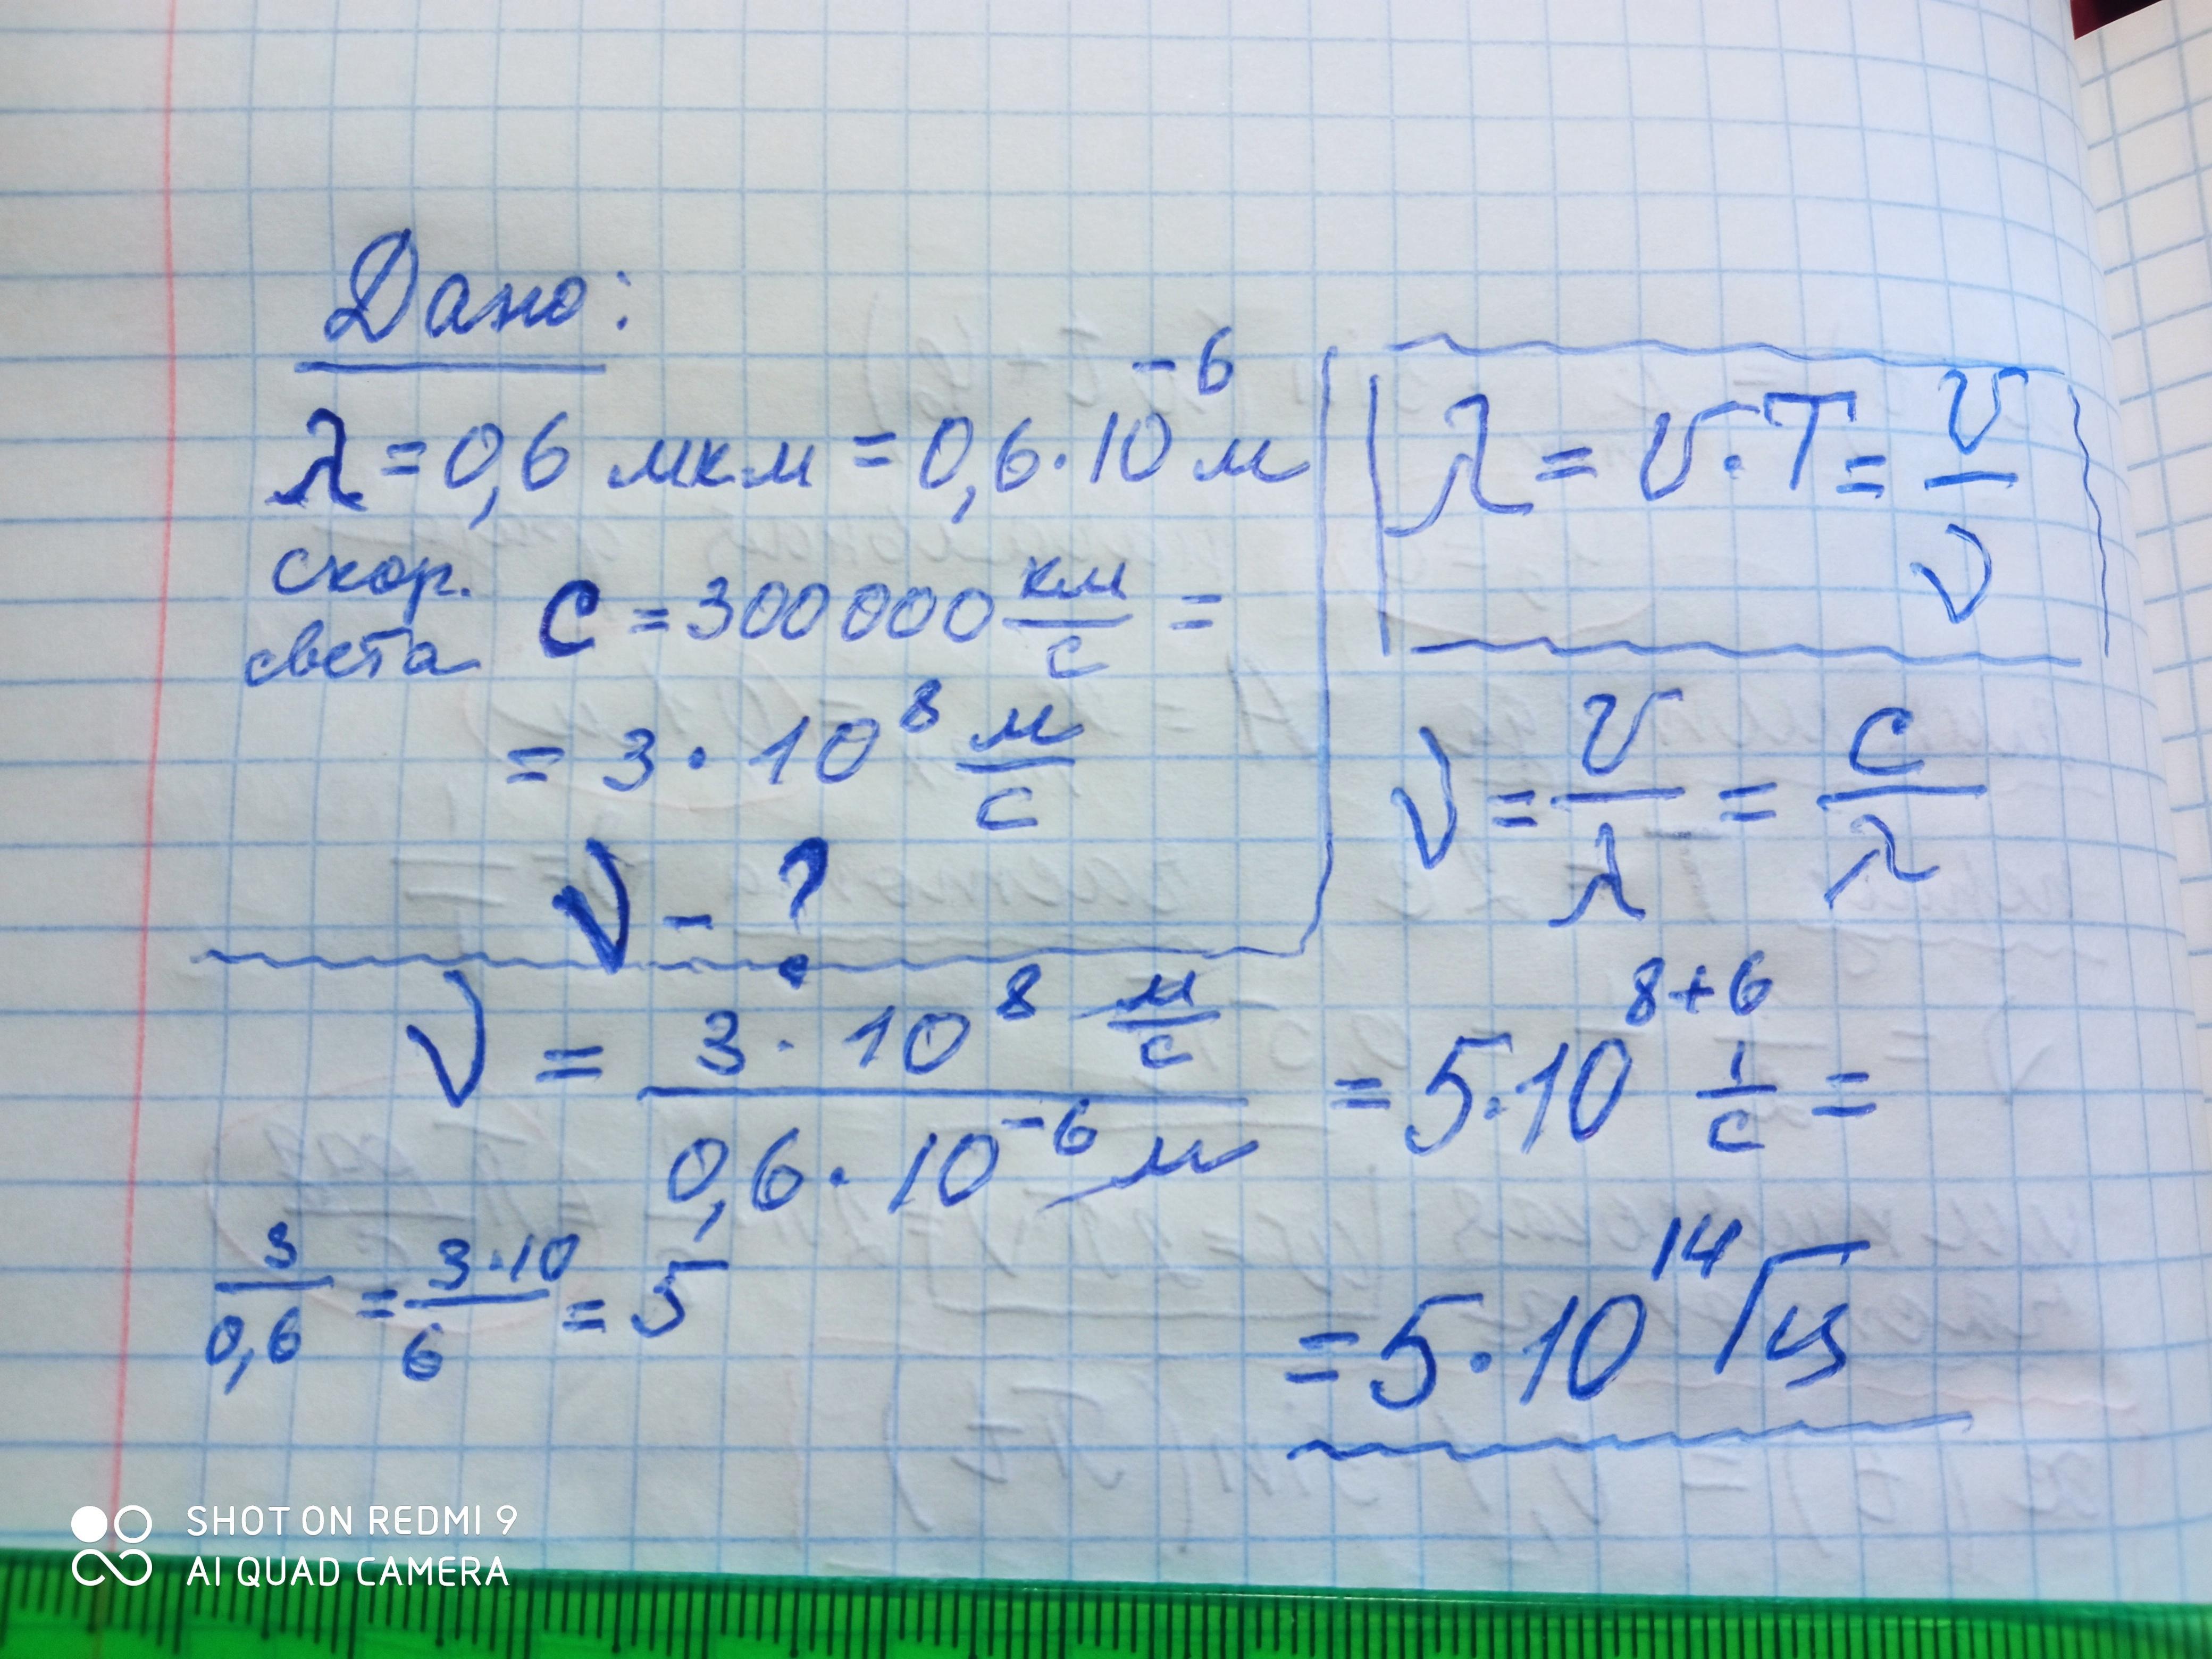 Дано:
λ = 0,6 мкм = 0,6·10⁻⁶ м
скор. света c = 300 000 км/с =
= 3 · 10⁸ м/с
ν - ?
λ = v·T = v/ν
ν = v/λ = c/λ
ν = (3 · 10⁸ м/с)/(0,6 · 10⁻⁶ м) = 5·10⁸⁺⁶ 1/с =
3/0,6 = 3·10/6 = 5
= 5·10¹⁴ Гц
SHOT ON REDMI 9
AI QUAD CAMERA